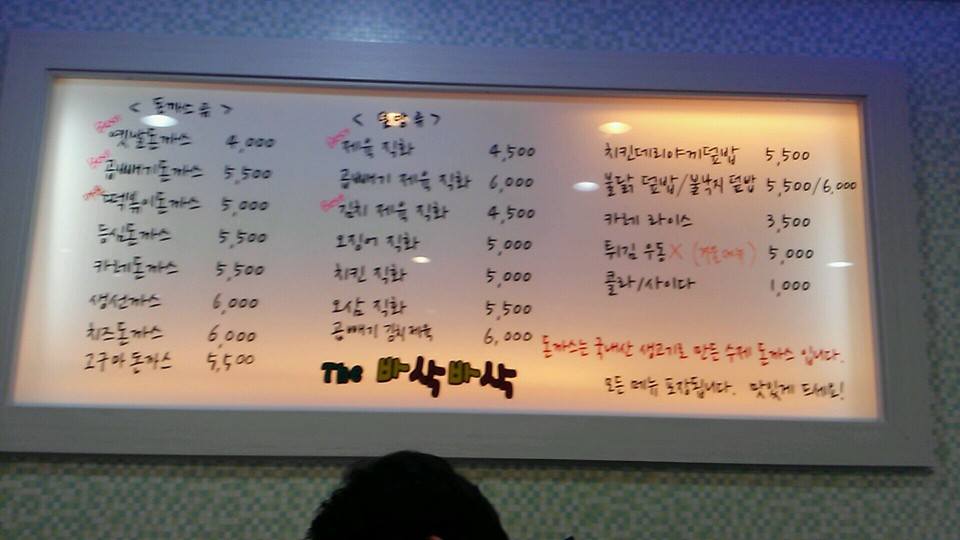 < 돈까스류 >
Best 옛날돈까스 4,000
Best 곱빼기돈까스 5,500
떡볶이돈까스 5,000
등심돈까스 5,500
카레돈까스 5,500
생선까스 6,000
치즈돈까스 6,000
고구마 돈까스 5,500
< 덮밥류 >
Best 제육 직화 4,500
곱빼기 제육 직화 6,000
Best 김치 제육 직화 4,500
오징어 직화 5,000
치킨 직화 5,000
오삼 직화 5,500
곱빼기 김치제육 6,000
The 바삭바삭
치킨데리야끼덮밥 5,500
불닭 덮밥/불낙지 덮밥 5,500/6,000
카레 라이스 3,500
튀김 우동 X (겨울메뉴) 5,000
콜라/사이다 1,000
돈까스는 국내산 생고기로 만든 수제 돈까스 입니다.
모든 메뉴 포장됩니다. 맛있게 드세요!